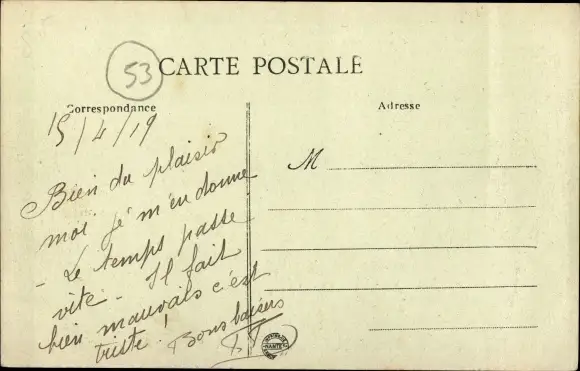 53
CARTE POSTALE
Correspondance
Adresse
15/4/19
Bien du plaisir
moi je m'en donne
- Le temps passe
vite - Il fait
bien mauvais c'est
triste ! Bons baisers
M